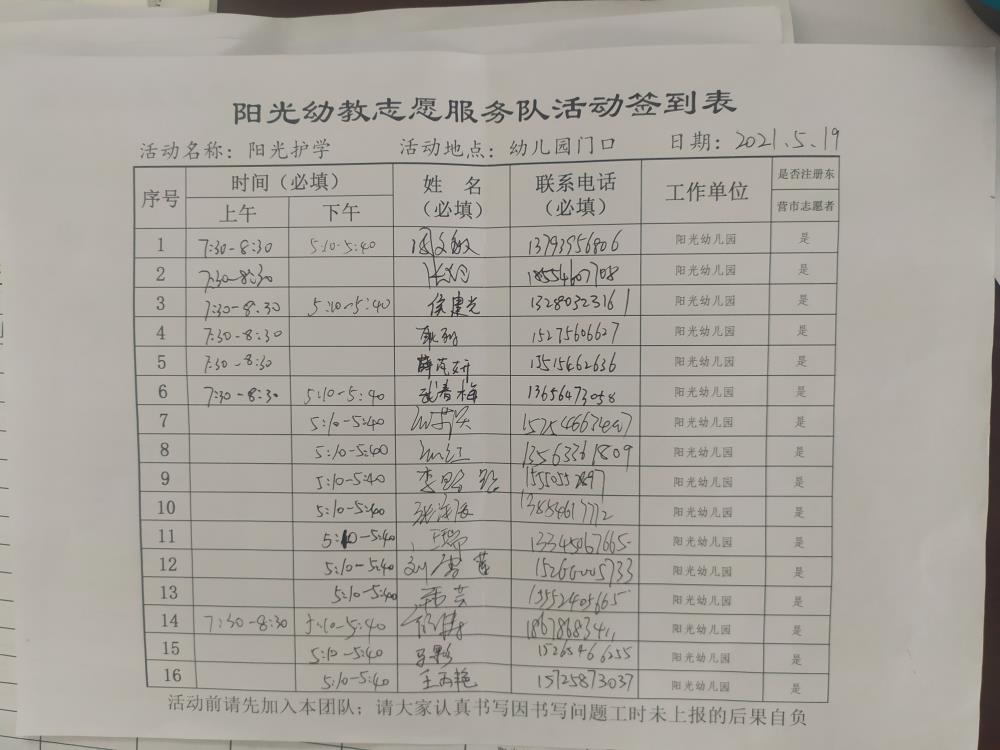 阳光幼教志愿服务队活动签到表
活动名称：阳光护学 活动地点：幼儿园门口 日期：2021.5.19
序号 时间（必填） 姓名（必填） 联系电话（必填） 工作单位 是否注册东营市志愿者
上午 下午
1 7:30-8:30 5:10-5:40 13793956806 阳光幼儿园 是
2 7:30-8:30 18554607708 阳光幼儿园 是
3 7:30-8:30 5:10-5:40 侯建光 13280323161 阳光幼儿园 是
4 7:30-8:30 15275606627 阳光幼儿园 是
5 7:30-8:30 薛芃妍 13515462636 阳光幼儿园 是
6 7:30-8:30 5:10-5:40 武春梅 13656473058 阳光幼儿园 是
7 5:10-5:40 阳光幼儿园 是
8 5:10-5:40 13563361809 阳光幼儿园 是
9 5:10-5:40 阳光幼儿园 是
10 5:10-5:40 13854617712 阳光幼儿园 是
11 5:10-5:40 王瑞 13345067665 阳光幼儿园 是
12 5:10-5:40 阳光幼儿园 是
13 5:10-5:40 韩芸 13552405665 阳光幼儿园 是
14 7:30-8:30 5:10-5:40 阳光幼儿园 是
15 5:10-5:40 15265466255 阳光幼儿园 是
16 5:10-5:40 王丙艳 15725873037 阳光幼儿园 是
活动前请先加入本团队；请大家认真书写因书写问题工时未上报的后果自负